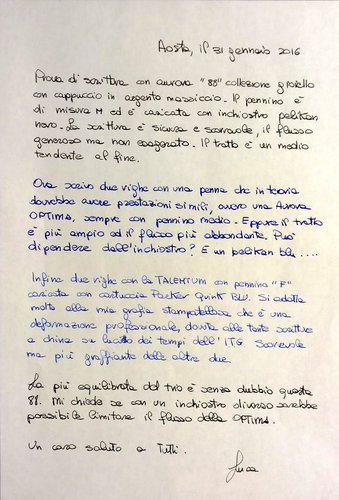 Aosta, il 31 gennaio 2016
Prova di scrittura con aurora "88" collezione gioiello
con cappuccio in argento massiccio. Il pennino è
di misura M ed è caricata con inchiostro pelikan
nero. La scrittura è sicura e scorrevole, il flusso
generoso ma non esagerato. Il tratto è un medio
tendente al fine.
Ora scrivo due righe con una penna che in teoria
dovrebbe avere prestazioni simili, ovvero una Aurora
OPTIMA, sempre con pennino medio. Eppure il tratto
è più ampio ed il flusso più abbondante. Può
dipendere dall'inchiostro? È un pelikan blu ....
Infine due righe con la TALENTUM con pennino "F"
caricata con cartuccia Parker Quink BLU. Si adatta
molto alla mia grafia stampatellosa che è una
deformazione professionale, dovuta alle tante scritture
a china su lucido dei tempi dell'ITG. Scorrevole
ma più graffiante delle altre due.
La più equilibrata del trio è senza dubbio questa
88. Mi chiedo se con un inchiostro diverso sarebbe
possibile limitare il flusso della OPTIMA.
Un caro saluto a Tutti.
Luca